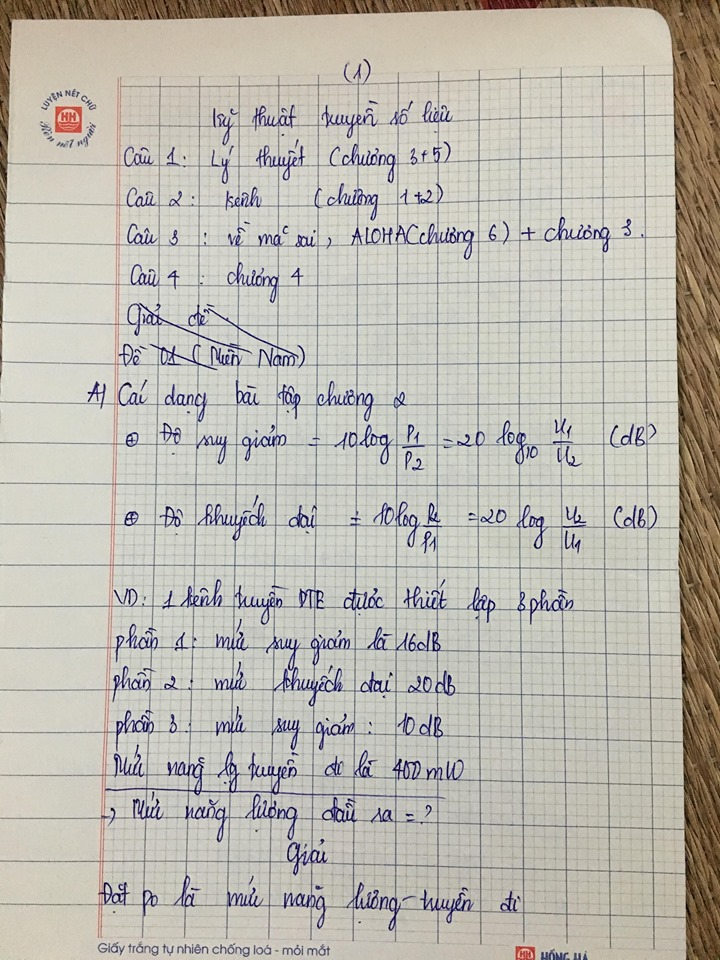 (1)
LUYỆN NÉT CHỮ
HH
Rèn nết người
Kỹ thuật truyền số liệu
Câu 1: Lý thuyết (chương 3+5)
Câu 2: kênh (chương 1+2)
Câu 3: về mặc sai, ALOHA(chương 6) + chương 3.
Câu 4: chương 4
Giải đề
Đề 01 (Miền Nam)
A) Các dạng bài tập chương 2
⊕ Độ suy giảm = 10log P1/P2 = 20 log10 U1/U2 (dB)
⊕ Độ khuyếch đại = 10log P2/P1 = 20 log U2/U1 (dB)
VD: 1 kênh truyền DTE được thiết lập 3 phần
phần 1: mức suy giảm là 16dB
phần 2: mức khuyếch đại 20dB
phần 3: mức suy giảm: 10dB
Mức năng lg truyền đi là 400mW
→ Mức năng lượng đầu ra = ?
Giải
Đặt po là mức năng lượng truyền đi
Giấy trắng tự nhiên chống loá - mỏi mắt
HH HỒNG HÀ